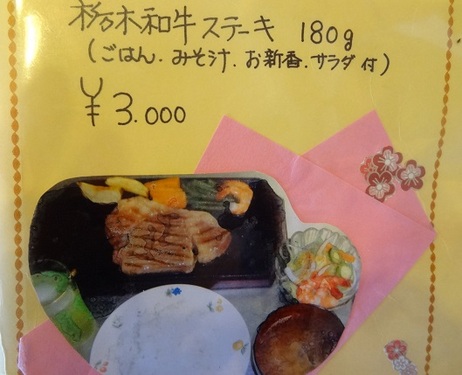 栃木和牛ステーキ 180g
(ごはん.みそ汁.お新香.サラダ付)
¥3.000